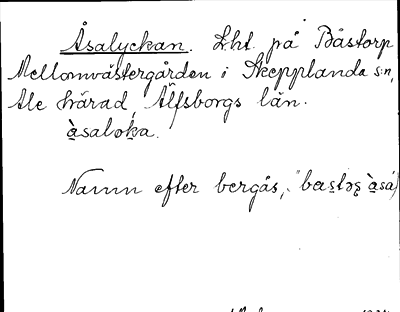 Åsalyckan. Lht. på Båstorp
Mellomvästergården i Skepplanda s:n,
Ale härad, Älfsborgs län.
àsaloka.
Namn efter bergås,